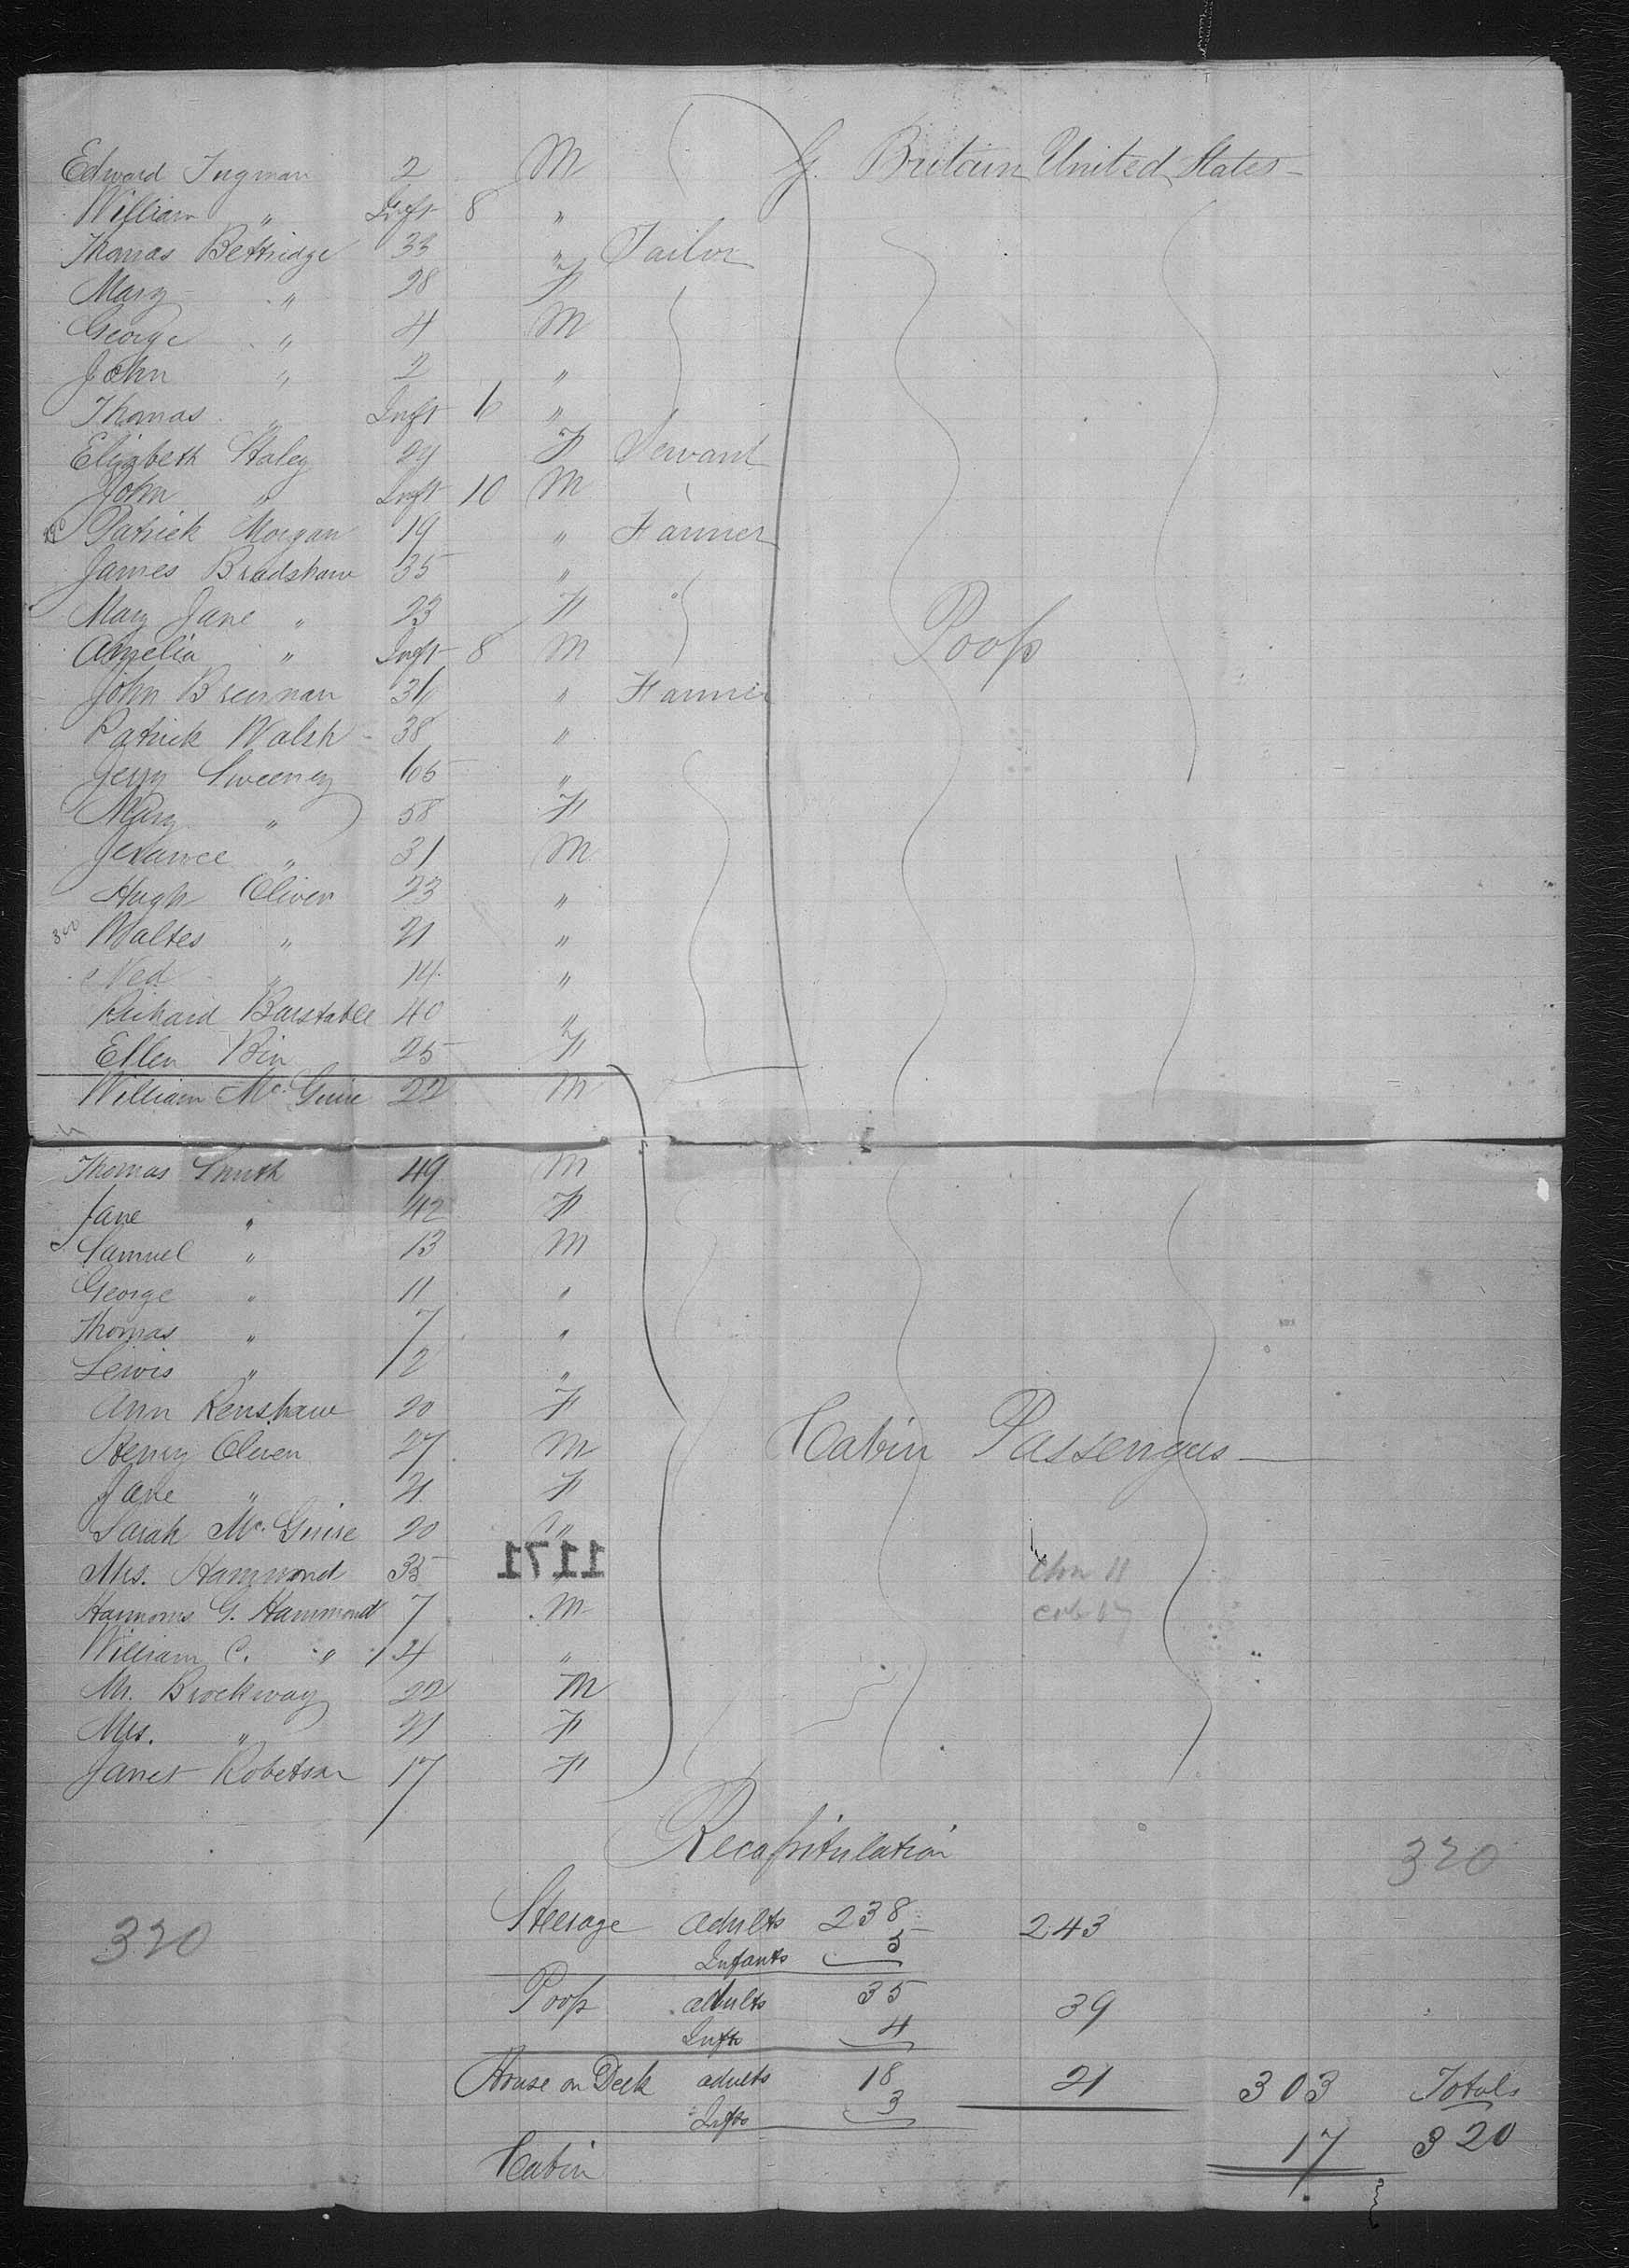 Edward Ingman 2 M G. Britain United States
William " Inft 8 "
Thomas Bettridge 33 " Tailor
Mary " 28 F
George " 4 M
John " 2 "
Thomas " Inft 6 "
Elizabeth Staley 29 F Servant
John " Inft 10 M
Patrick Morgan 19 " Farmer
James Bradshaw 35 "
Mary Jane " 23 F
Amelia " Inft 8 M Poop
John Brennan 36 " Farmer
Patrick Walsh 38 "
Jerry Sweeney 65 "
Mary " 58 F
31 M
Hugh Oliver 23 "
300 Walter " 21 "
Ned " 14 "
Richard Barstable 40 "
Ellen 25 F
William McGuire 22 M
Thomas Smith 49 M
Jane " 42 F
Samuel " 13 M
George " 11 "
Thomas " 7 "
Lewis " 2 "
Ann Renshaw 20 F
Henry Oliver 27 M Cabin Passengers
Jane " 21 F
Sarah McGuire 20 "
1171
Mrs. Hammond 35
G. Hammond 7 M
William C. " 4 "
Mr. Brockway 22 M
Mrs. " 21 F
Janet Robetson 17 F
Recapitulation
320
Steerage adults 238 243
320
Infants 5
Poop adults 35 39
Infts 4
House on Deck adults 18 21 303 Totals
Infts 3
Cabin 17 320